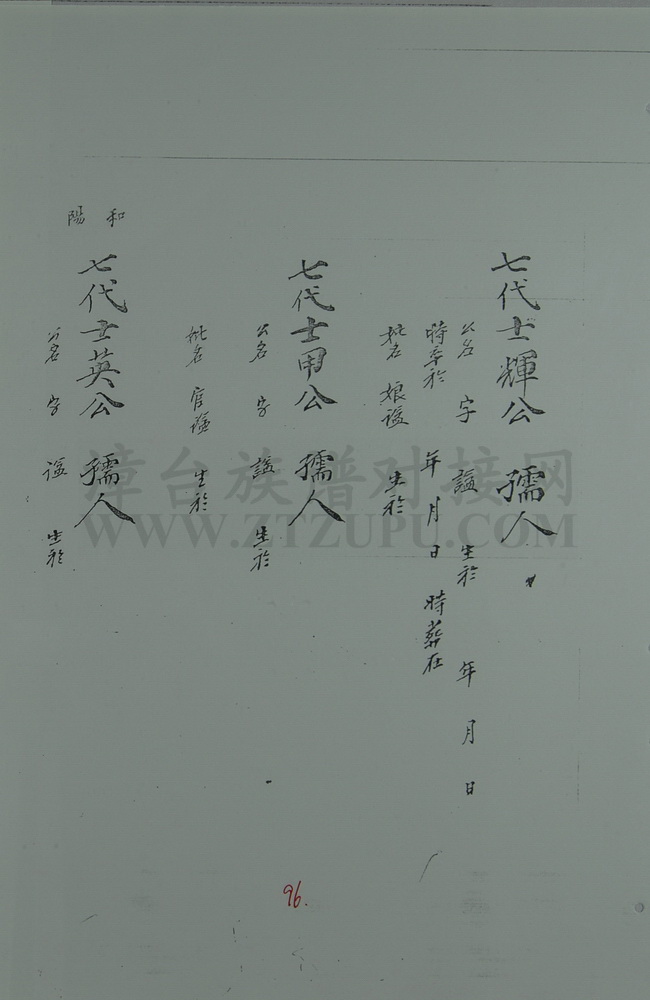 七代士輝公 孺人
公名 字 謚 生於 年 月 日
時卒於 年 月 日 時葬在
妣名 娘謚 生於
七代士甲公 孺人
公名 字 謚 生於
妣名 官謚 生於
和陽
七代士英公 孺人
公名 字 謚 生於
漳台族谱对接网
WWW.ZTZUPU.COM
96.